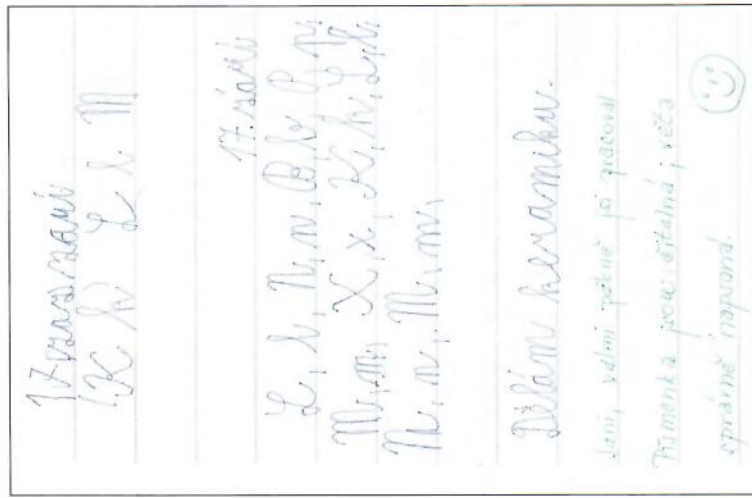 17. září
K k L l M
17. září
L, l, N, n, B b P, p,
M, m, X, x, K, k, L, l,
N, n, M, m,
Dělám keramiku.
Jani, velmi pěkně jsi pracoval.
Písmenka jsou čitelná, věta
správně napsaná.